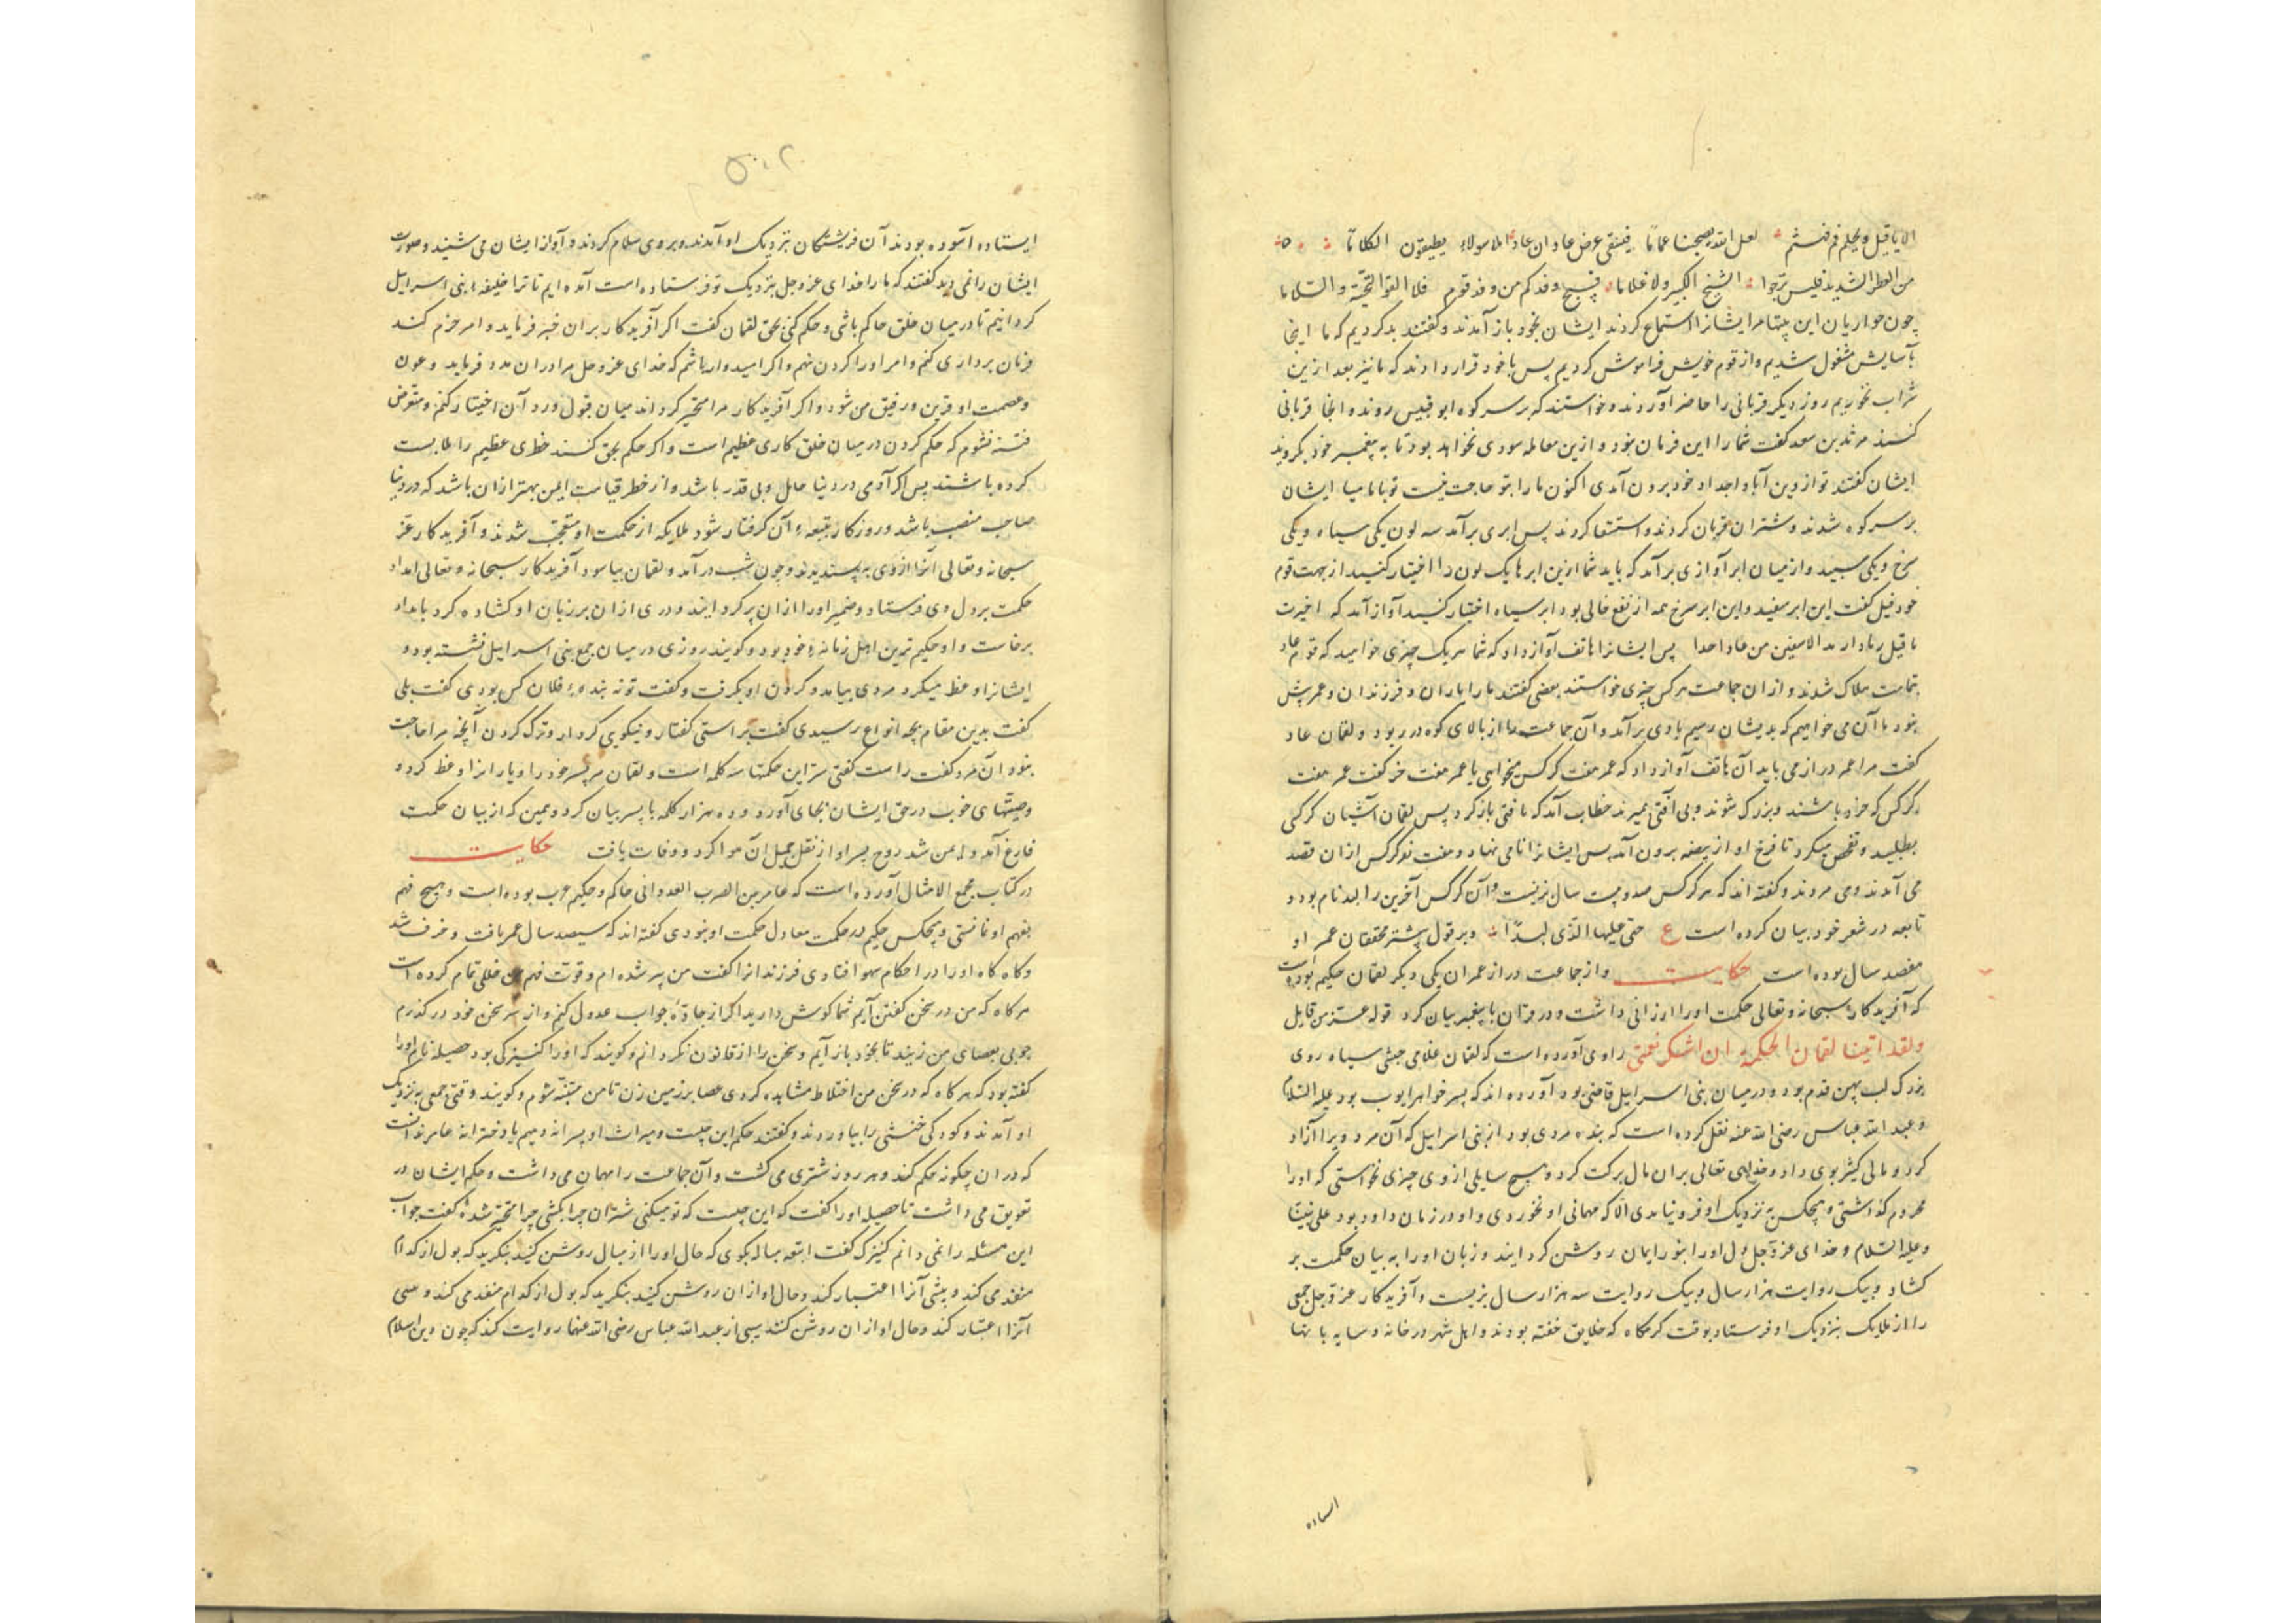 الا یا قیل ویحلم قم فهیثم لعل الله یصبحنا غماما فیسقی عرض عاد ان عادا املا سولاء یطیقون الکلاما
من العطش الشدید فلیس نرجوا الشیخ الکبیر ولا غلاما فقبح وفدکم من وفد قوم فلا القوا التحیة والسلاما
چون حواریان این بیتها مر ایشانرا استماع کردند ایشان بخود باز آمدند و گفتند بد کردیم که ما اینجا
بآسایش مشغول شدیم و از قوم خویش فراموش کردیم پس با خود قرار دادند که ما نیز بعد ازین
شراب نخوریم روز دیگر قربانی را حاضر آوردند و خواستند که بر سر کوه ابو قبیس روند و آنجا قربانی
کنند مرثد بن سعد گفت شما را این فرمان نبود و ازین معامله سودی نخواهد بود تا به پیغمبر خود بگروید
ایشان گفتند تو از دین آبا و اجداد خود برون آمدی اکنون ما را بتو حاجت نیست تو با ما میا ایشان
بر سر کوه شدند و شتران قربان کردند و استسقا کردند پس ابری برآمد سه لون یکی سیاه و یکی
سرخ و یکی سپید و از میان ابر آوازی برآمد که باید شما ازین ابرها یک لون را اختیار کنید از بهت قوم
خود قیل گفت این ابر سفید و این ابر سرخ همه از نفع خالی بود ابر سیاه اختیار کنید آواز آمد که اخترت
یا قیل رمادا رمدد الا سقین من عاد احدا پس ایشانرا هاتف آواز داد که شما هر یک چیزی خواهید که قوم عاد
بتمامت هلاک شدند و از ان جماعت هر کس چیزی خواستند بعضی گفتند ما را یاران و فرزندان و عمر پش
نبود ما آن می خواهیم که بدیشان رسیم بادی برآمد و آن جماعت را از بالای کوه در ربود و لقمان عاد
گفت مرا عمر دراز می باید آن هاتف آواز داد که عمر هفت کرکس میخواهی یا عمر هفت خر گفت عمر هفت
کرکس که خرد باشند و بزرک شوند و بی آفتی بمیرند خطاب آمد که یافتی باز کرد پس لقمان آشیان کرکسی
بطلبید و تفحص میکرد تا فرخ او از بیضه برون آمد پس ایشانرا نامی نهاد و هفت نوکرکس از ان قصد
می آمدند و می مردند و گفته اند که هر کرکس صد و بیست سال بزیست و آن کرکس آخرین را لبد نام بود و
تابعه در شعر خود بیان کرده است ع حتی علیها الذی لبدا و بر قول پشتر محققان عمر او
هفصد سال بوده است حکایت و از جماعت دراز عمران یکی دیگر لقمان حکیم بوده است
که آفریدکار سبحانه و تعالی حکمت او را ارزانی داشت و در قران با پیغمبر بیان کرد قوله عز من قایل
ولقد اتینا لقمان الحکمة ان اشکر نعمتی راوی آورده است که لقمان غلامی حبشی سیاه روی
بزرک لب پهن قدم بود و در میان بنی اسراییل قاضی بود آورده اند که پسر خواهر ایوب بود علیه السلام
و عبد الله عباس رضی الله عنه نقل کرده است که بنده مردی بود از بنی اسراییل که آن مرد ویرا آزاد
کرد و مالی کثیر بوی داد و خدای تعالی بران مال برکت کرد و هیچ سایلی از وی چیزی نخواستی که او را
محروم گذاشتی و هیچکس به نزدیک او فرو نیامدی الا که مهمانی او نخوردی و او در زمان داود بود علی نبینا
و علیه السلام و خدای عز و جل دل او را بنور ایمان روشن کردانید و زبان او را به بیان حکمت بر
کشاد و بیک روایت هزار سال و بیک روایت سه هزار سال بزیست و آفریدکار عز و جل جمعی
را از ملایک بنزدیک او فرستاد بوقت کرمگاه که خلایق خفته بودند و اهل شهر در خانه و سایه بانها
استاده
۵۰۲
ایستاده آسوده بودند آن فریشتگان بنزدیک او آمدند و بروی سلام کردند و آواز ایشان می شنید و صورت
ایشان را نمی دید گفتند که ما را خدای عز و جل بنزدیک تو فرستاده است آمده ایم تا ترا خلیفه بنی اسراییل
کردانیم تا در میان خلق حاکم باشی و حکم کنی بحق لقمان گفت اگر آفریدکار بران خبر فرماید و امر جزم کند
فرمان برداری کنم و امر او را کردن نهم و اگر امیدوار باشم که خدای عز و جل مرا دران مدد فرماید و عون
و عصمت او قرین و رفیق من شود و اگر آفریدکار مرا مخیر کرداند میان قبول و رد آن اختیار نکنم و متعرض
فتنه نشوم که حکم کردن در میان خلق کاری عظیم است و اگر حکم بحق کنند خطری عظیم را ملابست
کرده باشند پس اگر آدمی در دنیا خامل و بی قدر باشد و از خطر قیامت ایمن بهتر ازان باشد که در دنیا
صاحب منصب باشد و روزکار بتبعه آن کرفتار شود ملایکه از حکمت او متعجب شدند و آفریدکار عز
سبحانه و تعالی آنرا از وی به پسندید و چون شب درآمد و لقمان بیاسود آفریدکار سبحانه و تعالی امداد
حکمت بر دل وی فرستاد و ضمیر او را ازان پر کردانید و دری ازان بر زبان او کشاده کرد بامداد
برخاست و او حکیم ترین اهل زمانه خود بود و گویند روزی در میان جمع بنی اسراییل نشسته بود و
ایشانرا وعظ میکرد مردی بیامد و کردن او بکرفت و گفت تو نه بنده فلان کس بودی گفت بلی
گفت بدین مقام بچه انواع رسیدی گفت براستی گفتار و نیکویی کردار و ترک کردن آنچه مرا حاجت
نبود آن مرد گفت راست گفتی سر این حکمتها سه کلمه است و لقمان مر پسر خود را و یارانرا وعظ کرد و
وصیتهای خوب در حق ایشان بجای آورد و ده هزار کلمه با پسر بیان کرد و همین که از بیان حکمت
فارغ آمد و ایمن شد روح پسر او از نقل جمیل ان موا کرد و وفات یافت حکایت
در کتاب مجمع الامثال آورده است که عامر بن الضرب العدوانی حاکم و حکیم عرب بوده است و هیچ فهم
بفهم او نمانستی و هیچکس حکیم در حکمت معادل حکمت او نبودی گفته اند که سیصد سال عمر یافت و خرف شد
و گاه گاه او را در احکام سهو افتادی فرزندانرا گفت من پیر شده ام و قوت فهم من خللی تمام کرده است
هر کاه که من در سخن گفتن آیم شما کوش دارید اگر از جاده جواب عدول کنم و از سر سخن خود در گذرم
چوبی بعصای من زنید تا بخود باز آیم و سخن را از قانون نگه دانم و گویند که او را کنیزکی بود حصیله نام او را
گفته بود که هر کاه که در سخن من اختلاط مشاهده کردی عصا بر زمین زن تا من متنبه شوم و گویند وقتی جمعی به نزدیک
او آمدند و کودکی خنثی را بیاوردند و گفتند حکم این چیست و میراث او پسرانه دهیم یا دخترانه عامر ندانست
که دران چگونه حکم کند و هر روز شتری می کشت و آن جماعت را مهمان می داشت و حکم ایشان در
تعویق می داشت تا حصیله او را گفت که این چیست که تو میکنی شتران چرا کشی چرا متحیر شده گفت جواب
این مسئله را نمی دانم کنیزک گفت اتبعه مباله بگوی که حال او را از مبال روشن کنید بنگرید که بول از کدام
منفذ می کند و بیشی آنرا اعتبار کند و حال او ازان روشن کنید بنگرید که بول از کدام منفذ می کند و عیسی
آنرا اعتبار کند و حال او ازان روشن کنند یسی از عبد الله عباس رضی الله عنهما روایت کند که چون دین اسلام